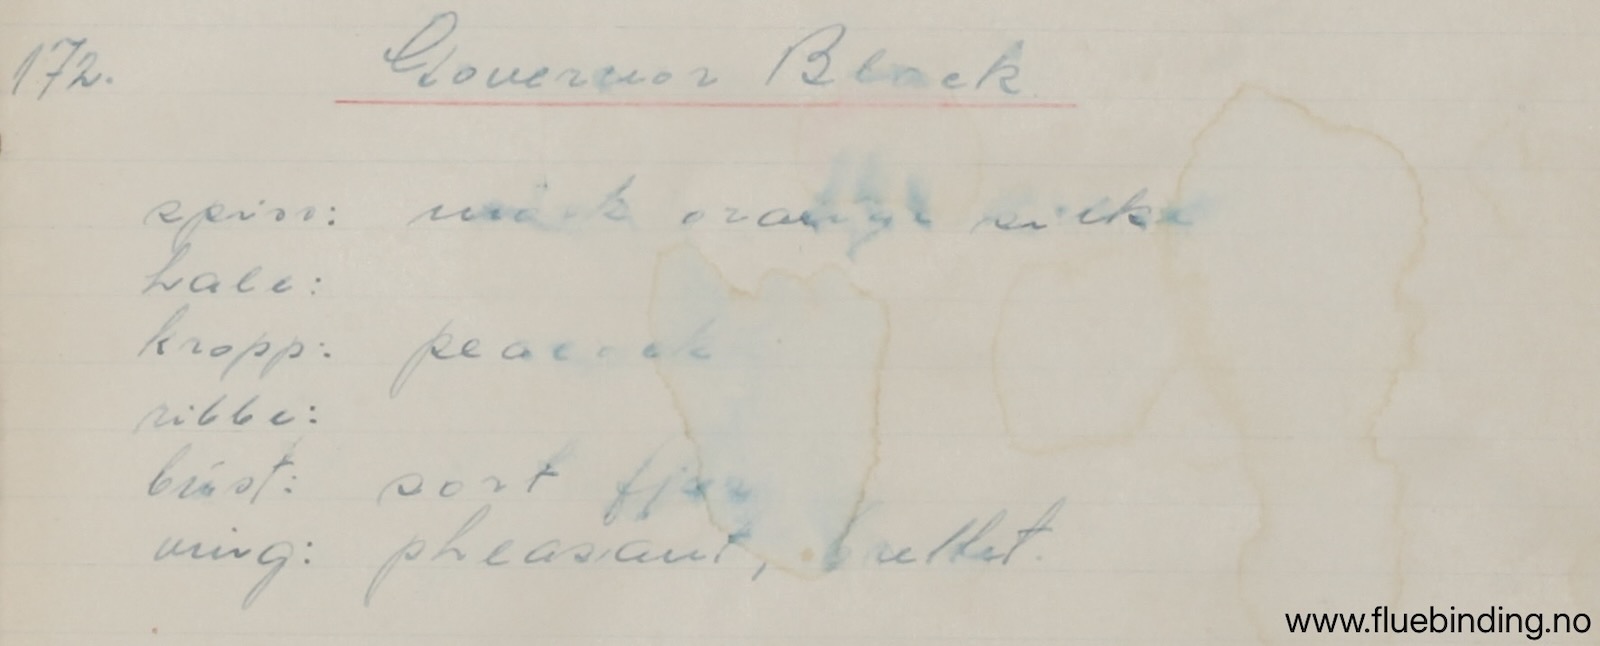 172. Governor Black.
spiss: mörk orange silke
hale:
kropp: peacock
ribbe:
büst: sort fjær
ving: pheasant, brettet.
www.fluebinding.no